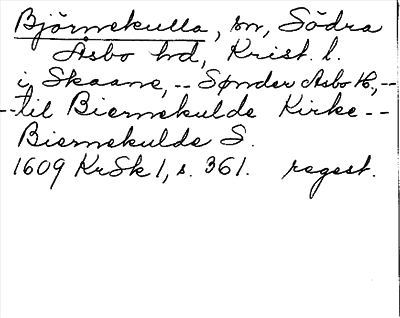 Björnekulla, sn, Södra
Åsbo hd, Krist. l.
i Skaane, -- Sønder Asbo H., --
-- til Biernekulde Kirke --
Biernekulde S.
1609 KrSk 1, s. 361. regest.